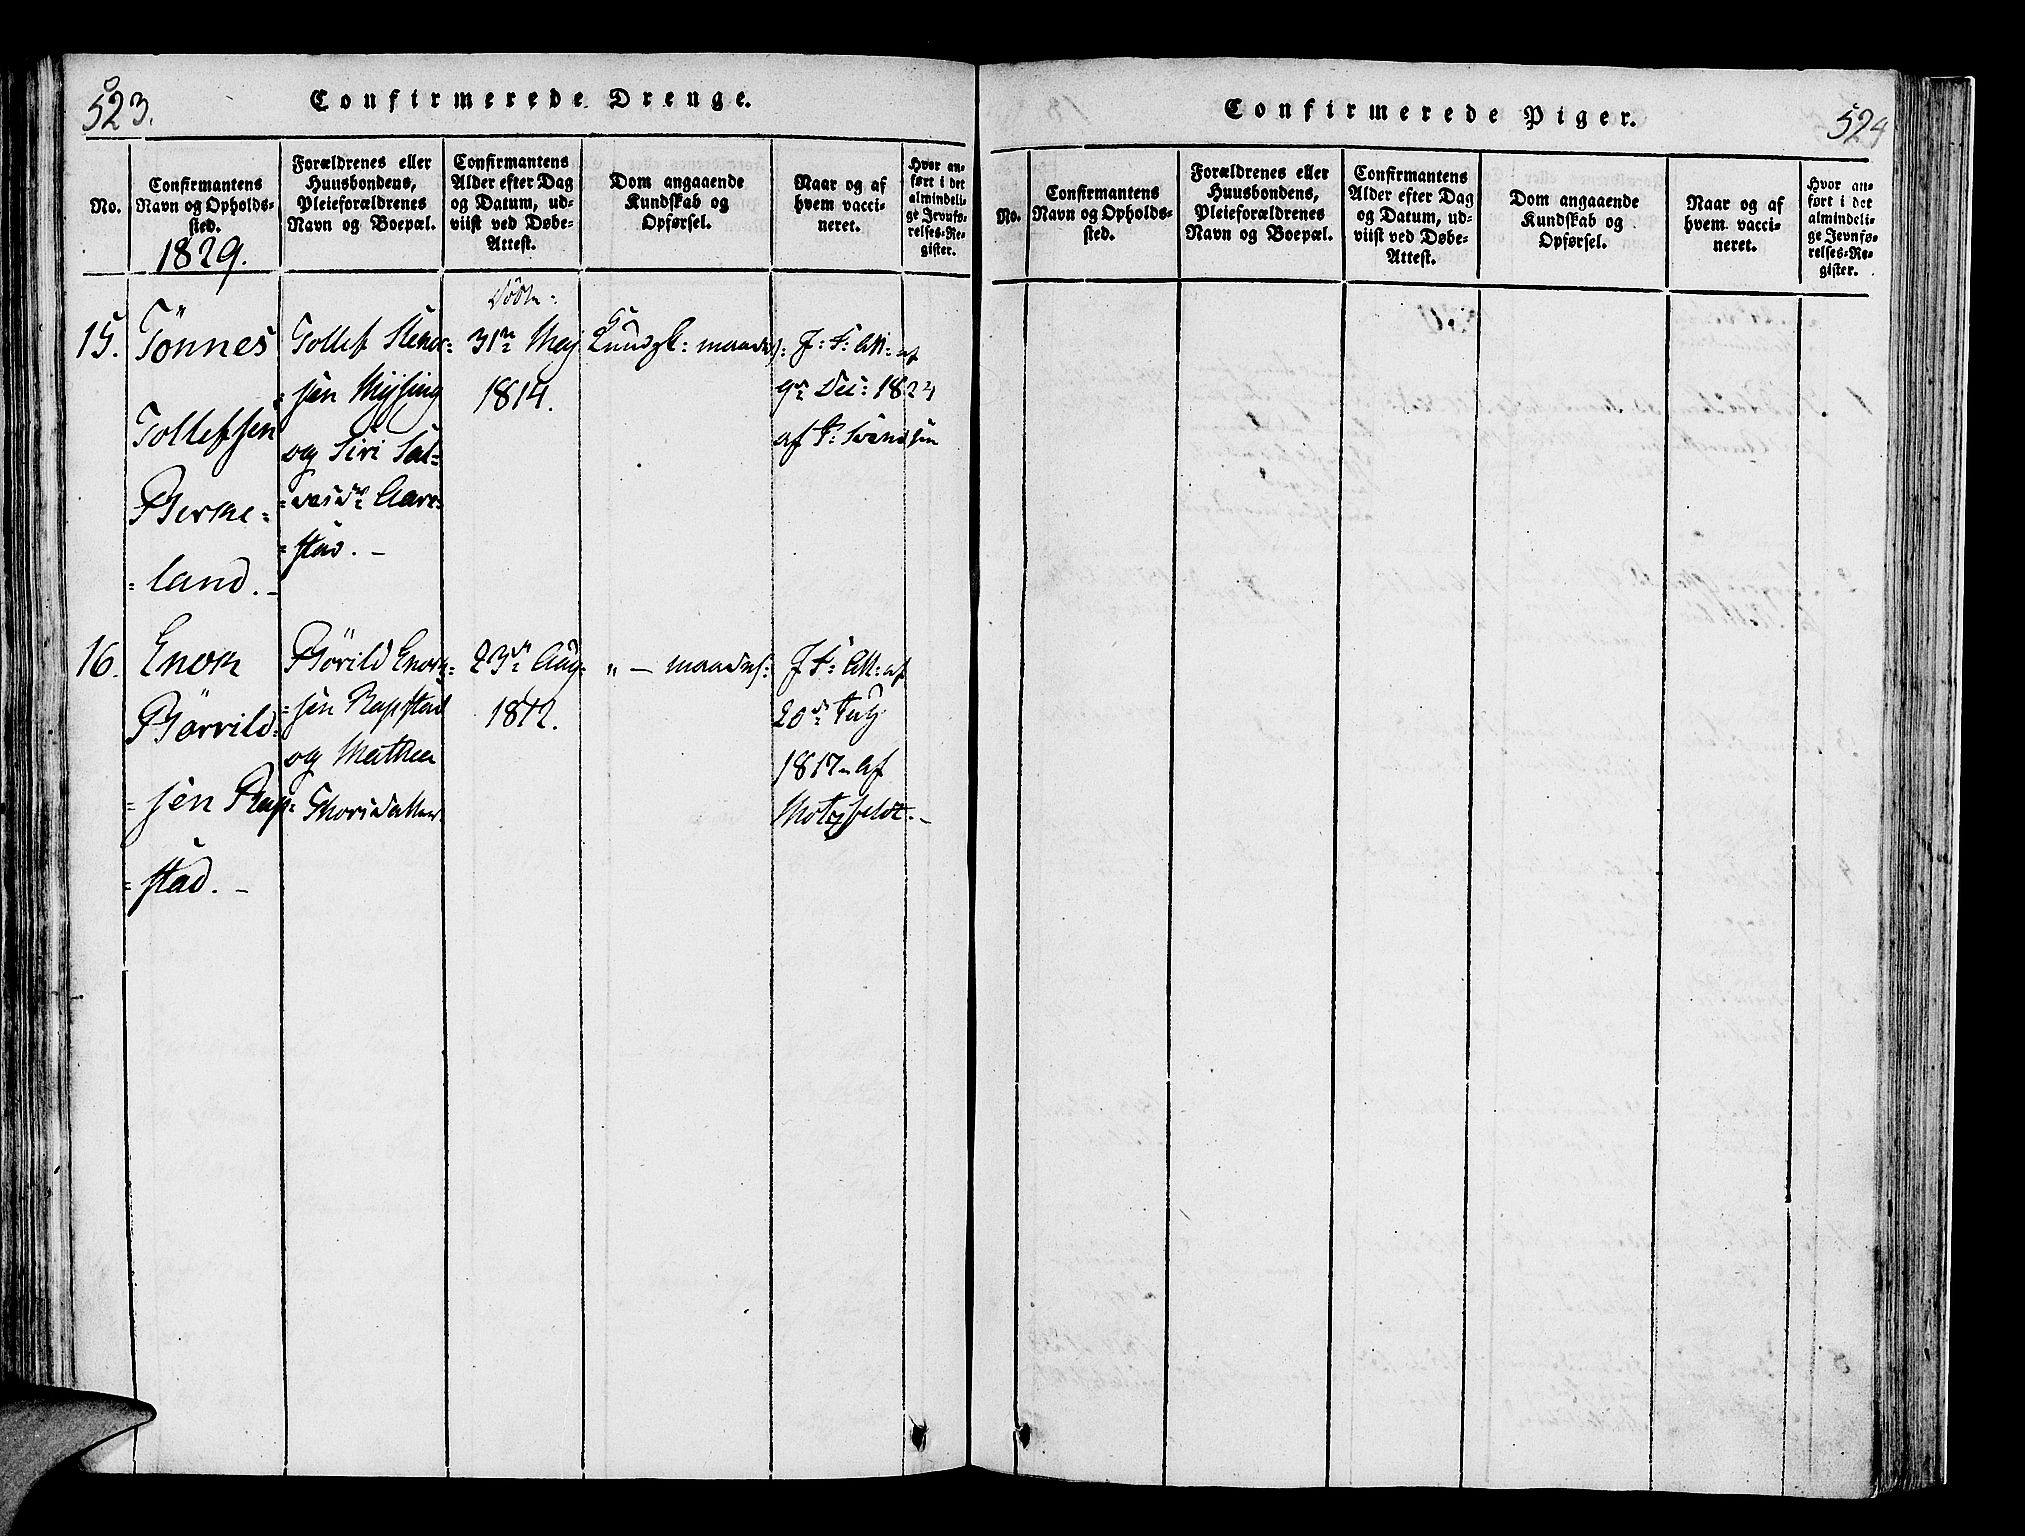 523.
Confirmerede Drenge.
No.
Confirmantens
Navn og Opholds-
sted.
Forældrenes eller
Huusbondens,
Pleieforældrenes
Navn og Boepæl.
Confirmantens
Alder efter Dag
og Datum, ud-
viist ved Døbe-
Attest.
Dom angaaende
Kundskab og
Opførsel.
Naar og af
hvem vacci-
neret.
Hvor an-
ført i det
almindeli-
ge Jevnfø-
relses-Re-
gister.
1829.
15.
Tönnes
Tollefsen
Birke=
=land.-
Tollef
=sen Mysing
og Siri Sal=
Aare=
=stad.-
Døbt:
31te Maj
1814.
Kundsk: maadel:
J: F: Att: af
9de Dec: 1824
af F: Svendsen
16.
Enok
Börild=
=sen Rap=
=stad.-
Börild Enok=
=sen Rapstad
og Mathea
Thorsdatter
23de Aug:
1812.
" — maadel:
J: F: Att: af
20de July
1817 af
Motzfeldt.-
524
Confirmerede Piger.
No.
Confirmantens
Navn og Opholds-
sted.
Forældrenes eller
Huusbondens,
Pleieforældrenes
Navn og Boepæl.
Confirmantens
Alder efter Dag
og Datum, ud-
viist ved Døbe-
Attest.
Dom angaaende
Kundskab og
Opførsel.
Naar og af
hvem vacci-
neret.
Hvor an-
ført i det
almindeli-
ge Jevnfø-
relses-Re-
gister.